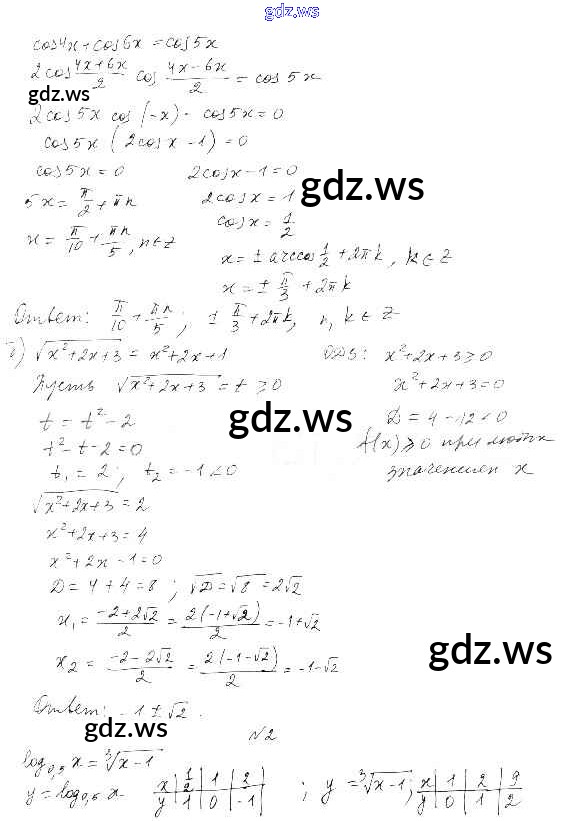 gdz.ws
cos4x + cos6x = cos5x
2cos (4x+6x)/2 cos (4x-6x)/2 = cos 5x
gdz.ws
2cos 5x cos (-x) - cos5x = 0
cos5x (2cosx - 1) = 0
cos5x = 0 2cosx - 1 = 0
gdz.ws
5x = π/2 + πn 2cosx = 1
cosx = 1/2
x = π/10 + πn/5, n∈Z
x = ± arccos 1/2 + 2πk, k∈Z
x = ± π/3 + 2πk
Ответ: π/10 + πn/5; ± π/3 + 2πk, n, k∈Z
б) √(x²+2x+3) = x²+2x+1 ОДЗ: x²+2x+3≥0
Пусть √(x²+2x+3) = t ≥ 0 x²+2x+3=0
gdz.ws
t = t² - 2 D = 4 - 12 < 0
t² - t - 2 = 0 f(x) ≥ 0 при любых
t₁ = 2; t₂ = -1 < 0 значениях x
√(x²+2x+3) = 2
x²+2x+3 = 4
x²+2x-1=0
D = 4+4=8; √D = √8 = 2√2
x₁ = (-2+2√2)/2 = 2(-1+√2)/2 = -1+√2
gdz.ws
x₂ = (-2-2√2)/2 = 2(-1-√2)/2 = -1-√2
Ответ: -1±√2.
gdz.ws
N2
log₀,₅ x = ∛(x-1)
gdz.ws
y = log₀,₅ x x | 1/2 | 1 | 2 ; y = ∛(x-1); x | 1 | 2 | 9
y | 1 | 0 | -1 y | 0 | 1 | 2